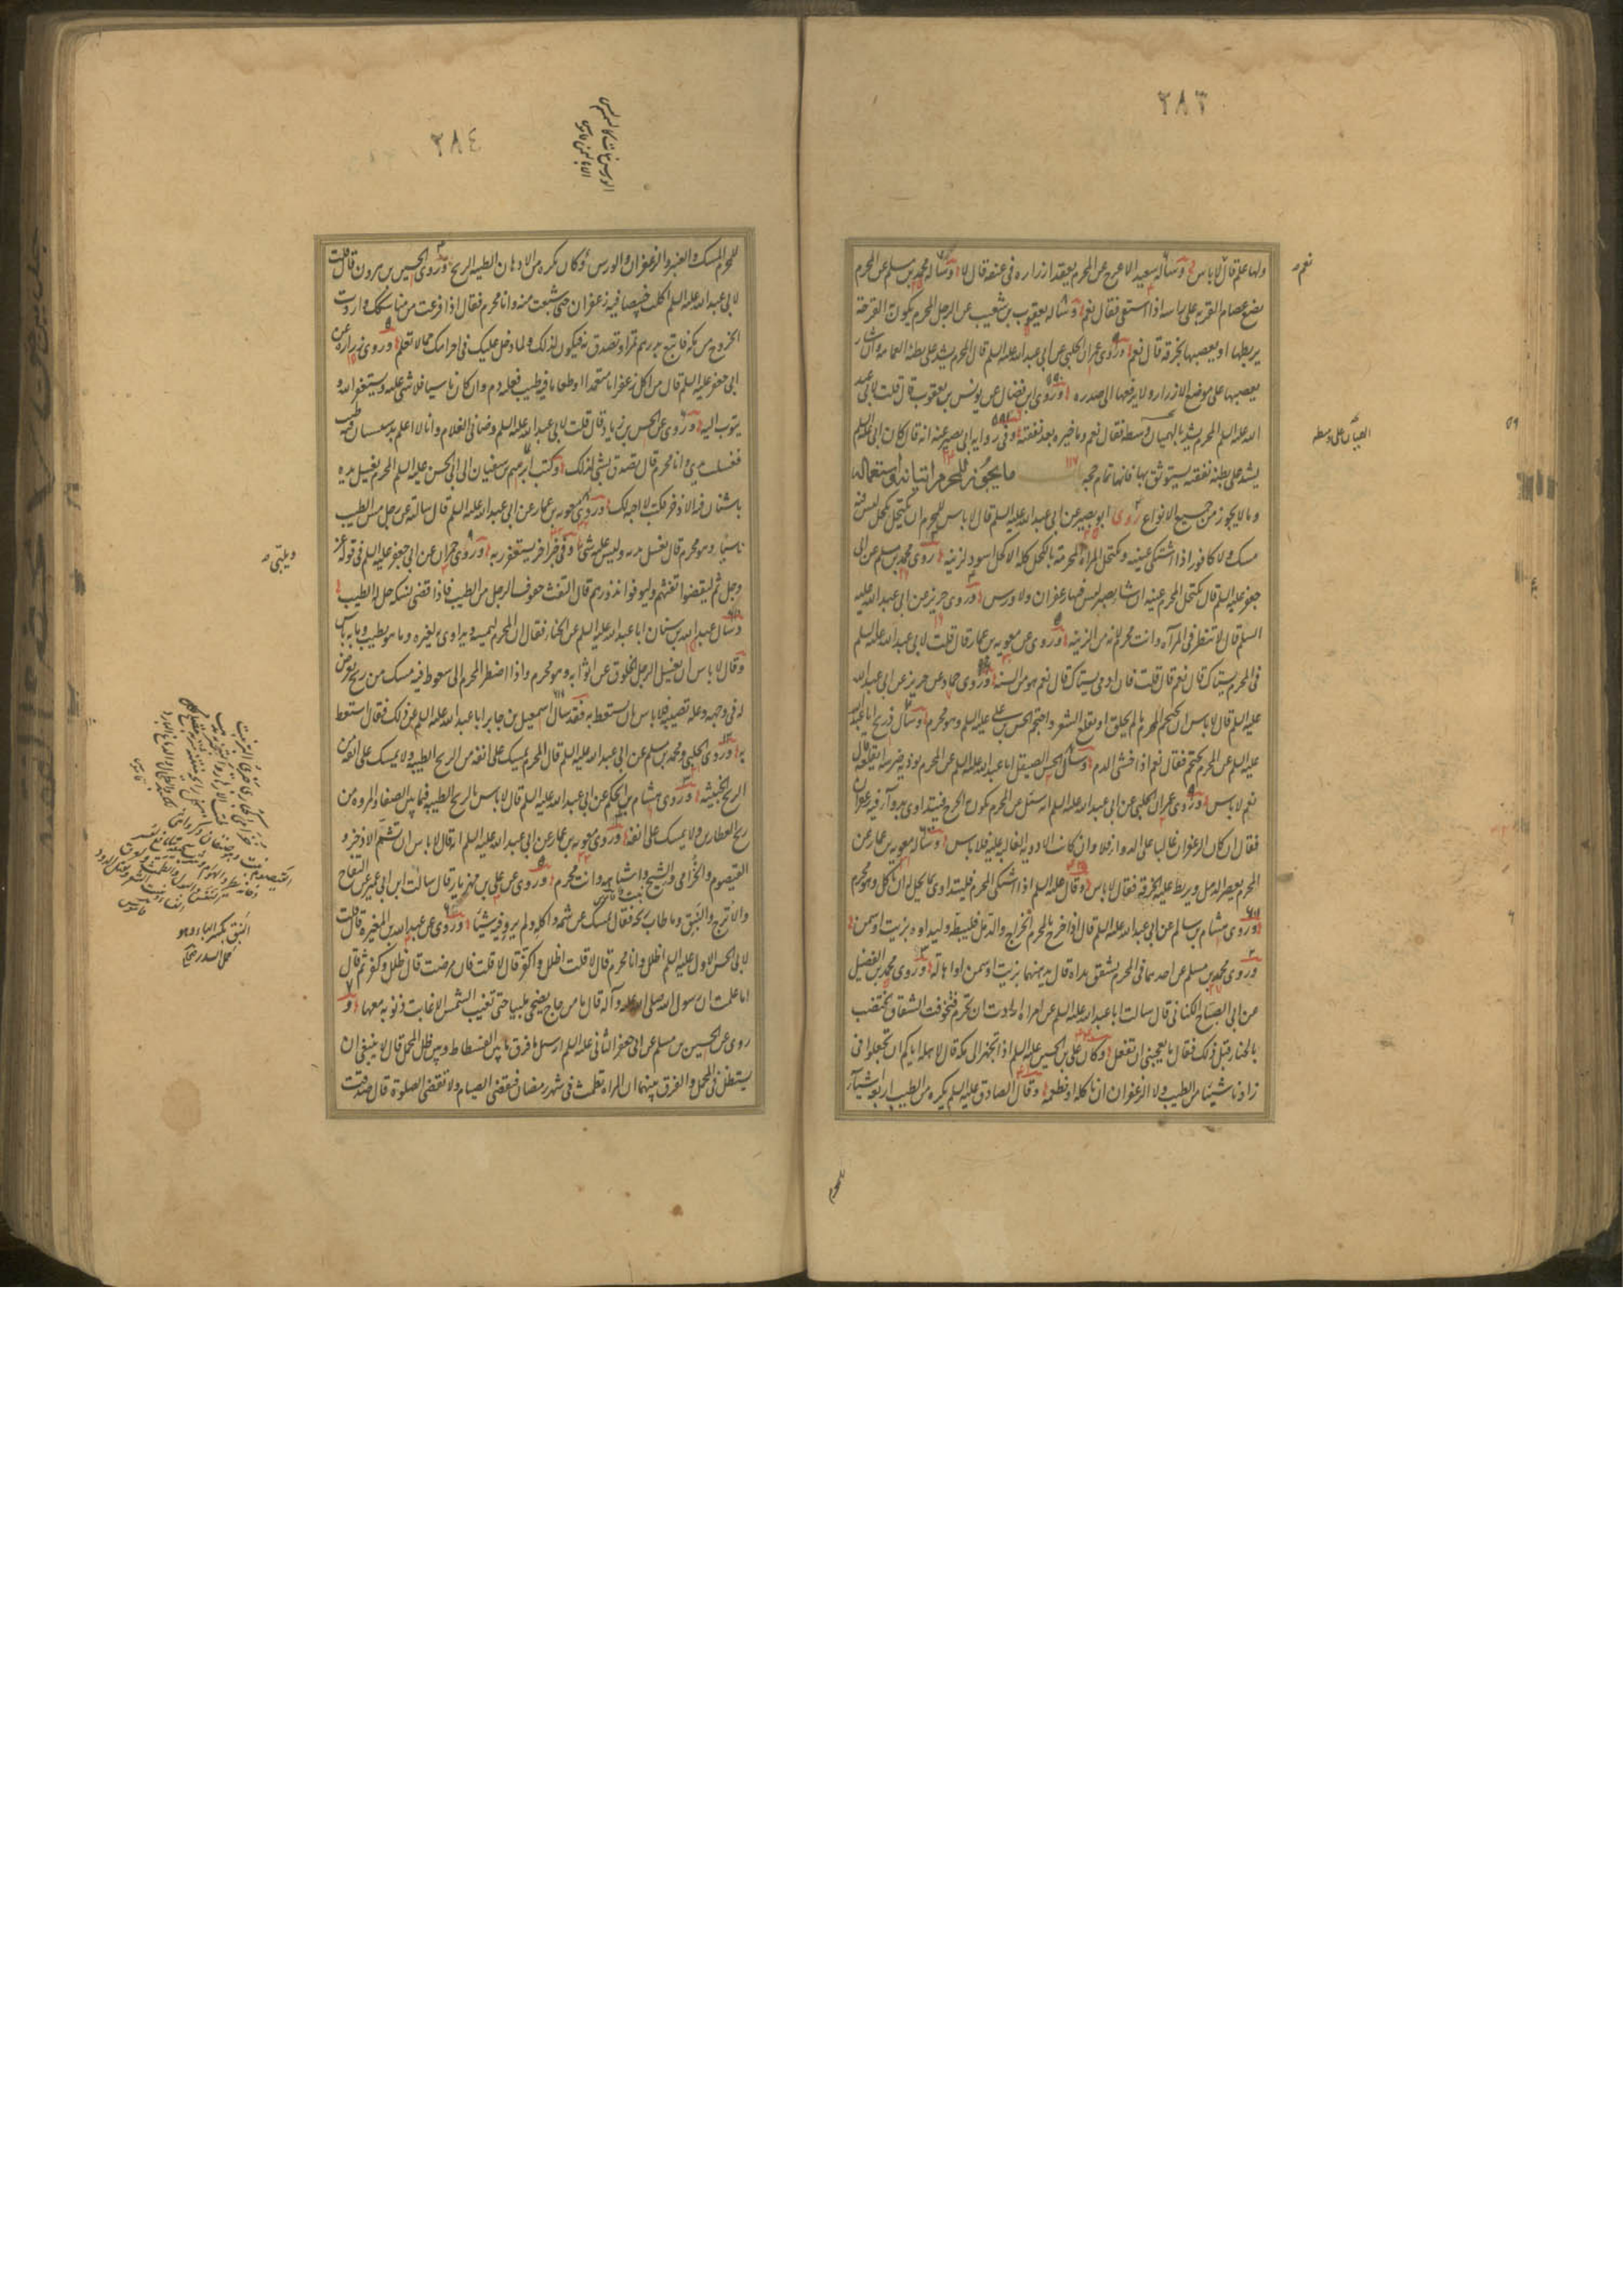 ٢٨٣
ولها علم قال لا باس وساله سعيد الاعرج عن المحرم يعقد ازاره فى عنقه قال لا وساله محمد بن مسلم عن المحرم
يضع عصام القربه على راسه اذا استقى فقال نعم وساله يعقوب بن شعيب عن الرجل المحرم يكون به القرحة
يربطها او يعصبها بخرقة قال نعم وروى عمران الحلبى عن ابى عبد الله عليه السلم قال المحرم يشد على بطنه العمامة وان شاء
يعصبها على موضع الازار ولا يرفعها الى صدره وروى ابن فضال عن يونس بن يعقوب قال قلت لابى عبد
الله عليه السلم المحرم يشد الهميان وسطه فقال نعم وما خيره بعد نفقته وفى رواية ابى بصير عنه انه قال كان ابى عليه السلم
يشد على بطنه نفقته يستوثق بها فانها تمام حجه ما يجوز للمحرم اتيانه واستعماله
وما لا يجوز من جميع الانواع روى ابو بصير عن ابى عبد الله عليه السلم قال لا باس للمحرم ان يكتحل بكحل ليس فيه
مسك ولا كافور اذا اشتكى عينيه وتكتحل المراة المحرمة بالكحل كله الا كحل اسود لزينة روى محمد بن مسلم عن ابى
جعفر عليه السلم قال يكتحل المحرم عينيه ان شاء بصبر ليس فيه زعفران ولا ورس وروى حريز عن ابى عبد الله عليه
السلم قال لا تنظر فى المرآة وانت محرم لانه من الزينة وروى عن معويه بن عمار قال قلت لابى عبد الله عليه السلم
فى المحرم يستاك قال نعم قال قلت فان ادمى يستاك قال نعم هو من السنة وروى حماد عن حريز عن ابى عبد الله
عليه السلم قال لا باس ان يحتجم المحرم ما لم يحلق او يقلع الشعر واحتجم الحسن بن على عليه السلم وهو محرم وسال ذريح ابا عبد الله
عليه السلم عن المحرم يحتجم فقال نعم اذا خشى الدم وسال الحسن الصيقل ابا عبد الله عليه السلم عن المحرم يوذيه ضرسه ايقلعه قال
نعم لا باس وروى عمران الحلبى عن ابى عبد الله عليه السلم انه سئل عن المحرم يكون به الجرح فيتداوى بدواء فيه زعفران
فقال ان كان الزعفران غالبا على الدواء فلا وان كانت الادوية الغالبة عليه فلا باس وساله معويه بن عمار عن
المحرم يعصر الدمل ويربط عليه الخرقة فقال لا باس وقال عليه السلم اذا اشتكى المحرم فليتداوى بما يحل له ان ياكل وهو محرم
وروى هشام بن سالم عن ابى عبد الله عليه السلم قال اذا خرج بالمحرم الخراج والدمل فليبطه وليداوه بزيت او سمن
وروى محمد بن مسلم عن احدهما فى المحرم تشقق يداه قال يدهنهما بزيت او سمن او اهالة وروى محمد بن الفضيل
عن ابى الصباح الكنانى قال سالت ابا عبد الله عليه السلم عن امراة ارادت ان تحرم فتخوفت الشقاق تختضب
بالحناء قبل ذلك فقال ما يعجبنى ان تفعل وكان على بن الحسين عليه السلم اذا تجهز الى مكة قال لاهله اياكم ان تجعلوا فى
زادنا شيئا من الطيب ولا الزعفران ان ناكله او نطعمه وقال الصادق عليه السلم يكره من الطيب اربعة اشياء
نعم
٢٨٤
للمحرم المسك والعنبر والزعفران والورس وكان يكره من الادهان الطيبة الريح وروى الحسين بن هرون قال قلت
لابى عبد الله عليه السلم اكلت خبيصا فيه زعفران حتى شبعت منه وانا محرم فقال اذا فرغت من مناسكك واردت
الخروج من مكة فابتع بدرهم تمرا وتصدق به فيكون لذلك ولما دخل عليك فى احرامك مما لا تعلم وروى زرارة عن
ابى جعفر عليه السلم قال من اكل زعفرانا متعمدا او طعاما فيه طيب فعليه دم وان كان ناسيا فلا شى عليه ويستغفر الله
ويتوب اليه وروى عن الحسن بن زياد قال قلت لابى عبد الله عليه السلم وضأنى الغلام وانا لا اعلم بدستشان فيه طيب
فغسلت يدى وانا محرم قال تصدق بشى لذلك وكتب ابرهيم بن سفيان الى ابى الحسن عليه السلم المحرم يغسل يده
باشنان فيه الاذخر فكتب لا احبه لك وروى معويه بن عمار عن ابى عبد الله عليه السلم قال سالته عن رجل مس الطيب
ناسيا وهو محرم قال يغسل يده وليس عليه شى وفى خبر اخر ويستغفر ربه وروى حمران عن ابى جعفر عليه السلم فى قوله عز
وجل ثم ليقضوا تفثهم وليوفوا نذورهم قال التفث حفوف الرجل من الطيب فاذا قضى نسكه حل له الطيب
وسال عبد الله بن سنان ابا عبد الله عليه السلم عن الحناء فقال ان المحرم ليمسه ويداوى به بعيره وما هو بطيب وما به باس
وقال لا باس ان يغسل الرجل الخلوق عن ثوبه وهو محرم واذا اضطر المحرم الى سعوط فيه مسك من ريح يعرض
له فى وجهه وعلة تصيبه فلا باس بان يستعط به فقد سال اسمعيل بن جابر ابا عبد الله عليه السلم عن ذلك فقال استعط
به وروى الحلبى ومحمد بن مسلم عن ابى عبد الله عليه السلم قال المحرم يمسك على انفه من الريح الطيبة ولا يمسك على انفه من
الريح الخبيثة وروى هشام بن الحكم عن ابى عبد الله عليه السلم قال لا باس بالريح الطيبة فيما بين الصفا والمروة من
ريح العطارين ولا يمسك على انفه وروى معويه بن عمار عن ابى عبد الله عليه السلم انه قال لا باس ان تشم الاذخر و
القيصوم والخزامى والشيح واشباهه وانت محرم وروى عن على بن مهزيار قال سالت ابن ابى عمير عن التفاح
والاترج والنبق وما طاب ريحه فقال تمسك عن شمه واكله ولم يرو فيه شيئا وروى عن عبد الله بن المغيره قال قلت
لابى الحسن الاول عليه السلم اظلل وانا محرم قال لا قلت اظلل واكفر قال لا قلت فان مرضت قال ظلل وكفر ثم قال
اما علمت ان رسول الله صلى الله عليه وآله قال ما من حاج يضحى ملبيا حتى تغيب الشمس الا غابت ذنوبه معها و
روى عن الحسين بن مسلم عن ابى جعفر الثانى عليه السلم انه سئل ما فرق ما بين الفسطاط وبين ظل المحمل قال لا ينبغى ان
يستظل فى المحمل والفرق بينهما ان المراة تطمث فى شهر رمضان فتقضى الصيام ولا تقضى الصلوة قال صدقت
النبق بكسر الباء وهو
حمل السدر